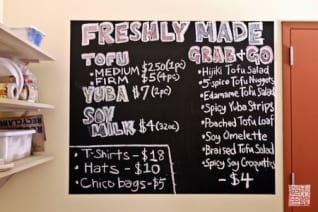 FRESHLY MADE
TOFU
• MEDIUM $2.50 (1pc)
• FIRM $5 (4pc)
YUBA $7 (2pc)
SOY MILK $4 (32oz)
• T-Shirts - $18
• Hats - $10
• Chico bags - $5
GRAB + GO
• Hijiki Tofu Salad
• 5-spice Tofu Nuggets
• Edamame Tofu Salad
• Spicy Yuba Strips
• Poached Tofu Loaf
• Soy Omelette
• Braised Tofu Salad
• Spicy Soy Croquettes
- $4